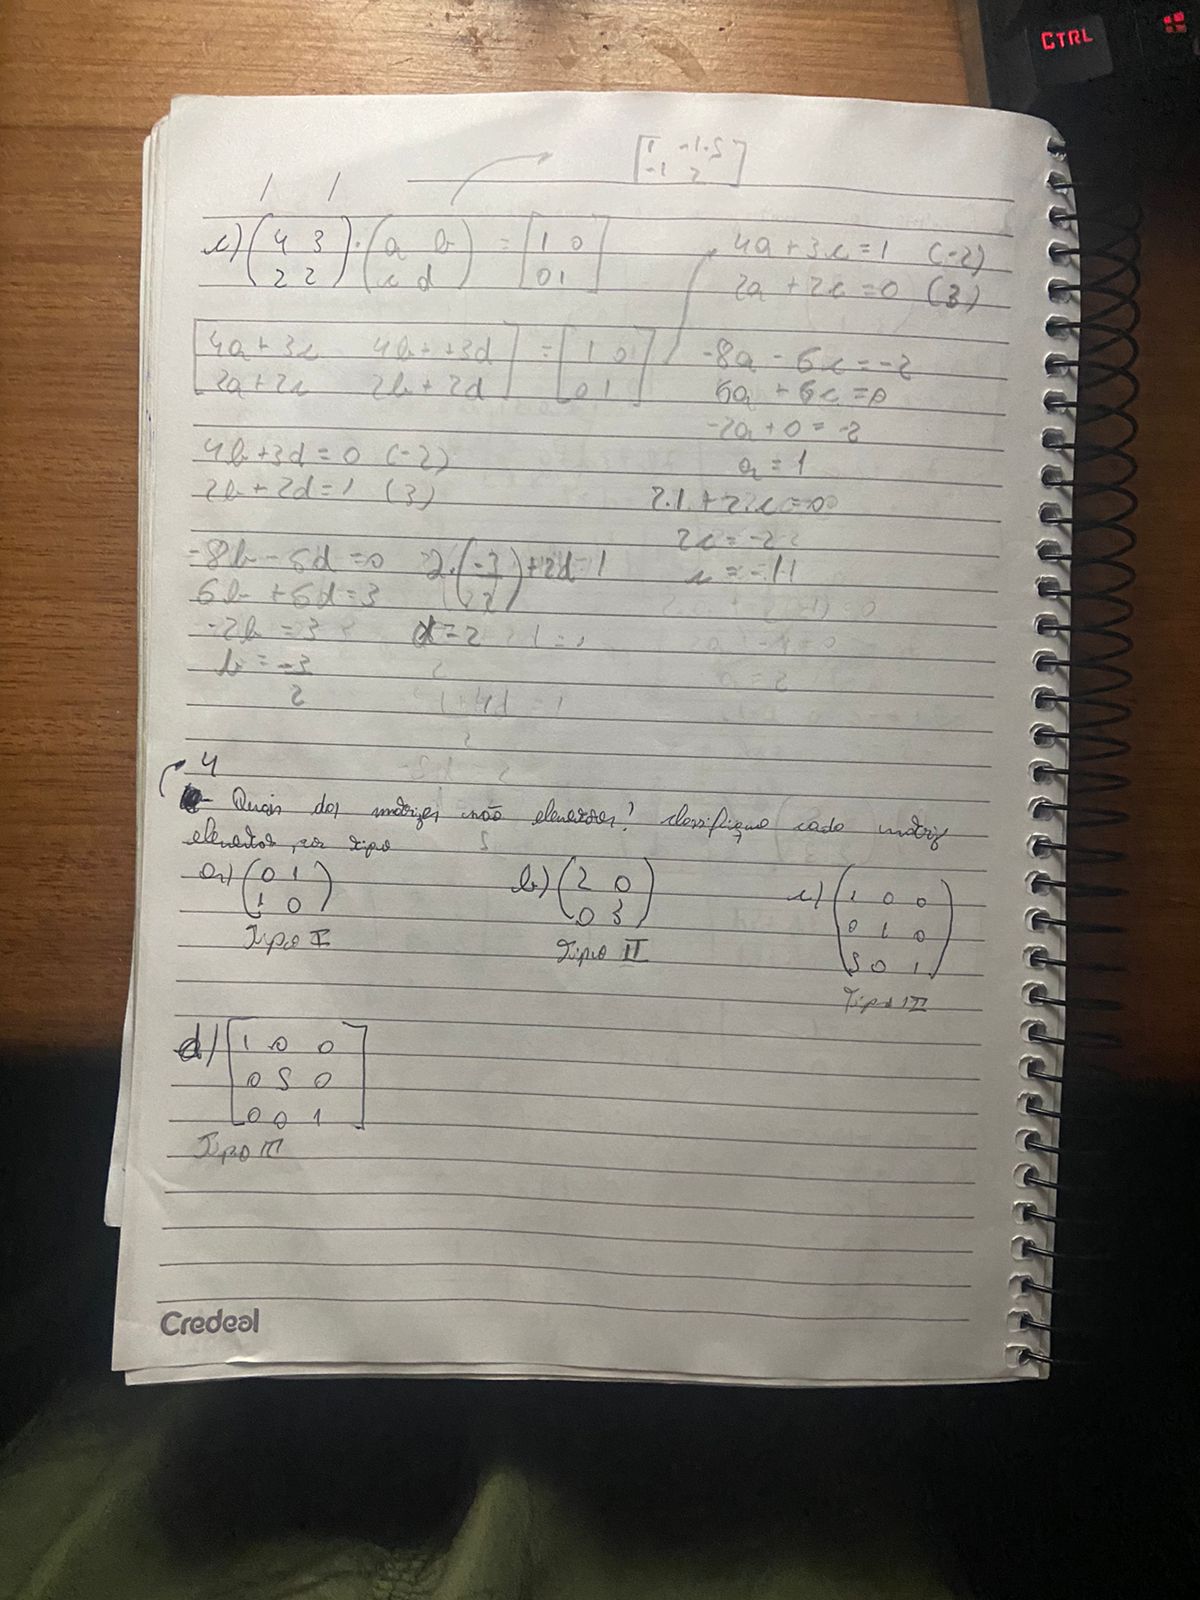 CTRL
[1 -1.5
-1 2]
c) (4 3
2 2) . (a b
c d) = [1 0
0 1]
4a + 3c = 1 (-2)
2a + 2c = 0 (3)
[4a + 3c 4b + +3d
2a + 2c 2b + 2d] = [1 0
0 1]
-8a - 6c = -2
6a + 6c = 0
-2a + 0 = -2
a = 1
2.1 + 2.c = 0
2c = -2
c = -1
4b + 3d = 0 (-2)
2b + 2d = 1 (3)
-8b - 6d = 0
6b + 6d = 3
-2b = 3
b = -3
2
2.(-3
2) + 2d = 1
d = 2
4
- Quais das matrizes são elementares? classifique cada matriz
elementar por tipo
a) (0 1
1 0)
Tipo I
b) (2 0
0 3)
Tipo II
c) (1 0 0
0 1 0
5 0 1)
Tipo III
d) [1 0 0
0 5 0
0 0 1]
Tipo II
Credeal